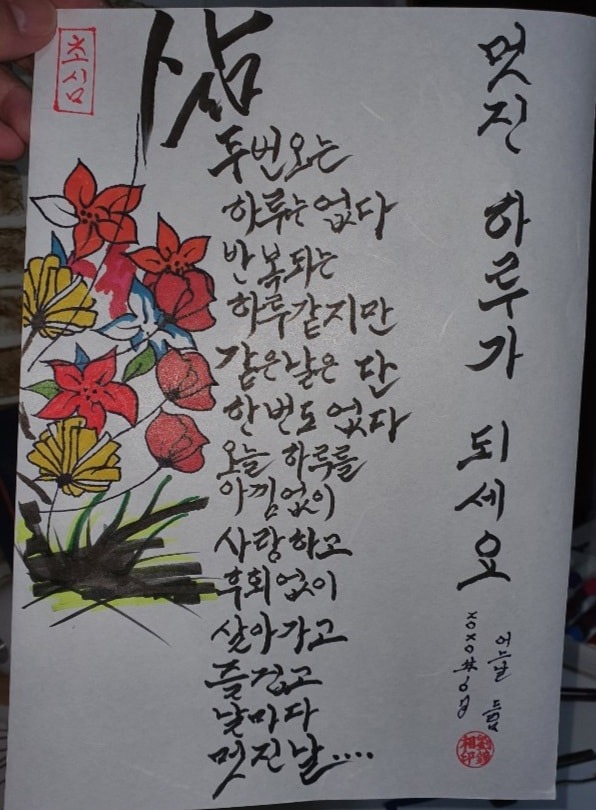 초심
삶
두번오는
하루는 없다
반복되는
하루같지만
같은날은 단
한번도 없다
오늘 하루를
아낌없이
사랑하고
후회없이
살아가고
즐겁고
날마다
멋진날....
멋진 하루가 되세요
어느날